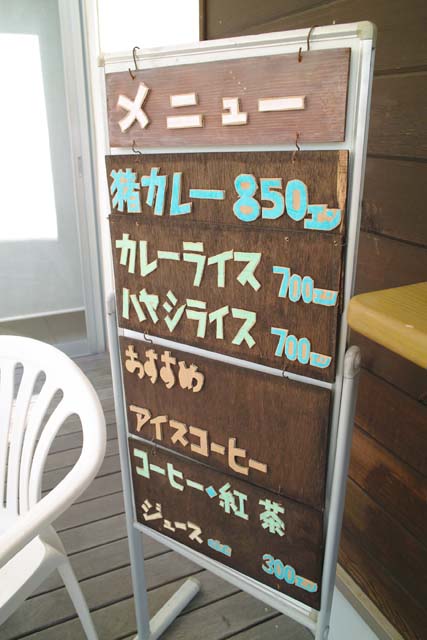 メニュー
猪カレー 850エン
カレーライス 700エン
ハヤシライス 700エン
おすすめ
アイスコーヒー
コーヒー・紅茶
ジュース 300エン